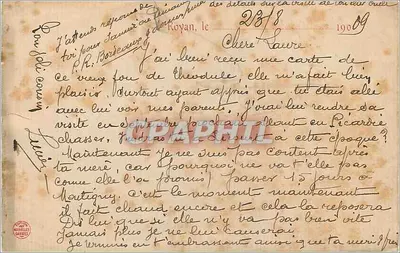 des détails sur la visite de
J'attends réponse de
toi pour
R. Bordeaux
Royan, le 23/8 1909
Ton joli cousin
Lucien
Chère Laure
J'ai bien reçu une carte de
ce vieux fou de théodule, elle m'a fait bien
plaisir. Surtout ayant appris que tu étais allée
avec lui voir mes parents. J'irai lui rendre sa
visite en allant en Picardie
chasser. à cette époque?
Maintenant je ne suis pas content après
ta mère, car pourquoi ne va t'elle pas
comme elle l'a promis, passer 15 jours à
Montigny, c'est le moment maintenant
il fait chaud encore et cela la reposera
Dis lui que si elle n'y va pas bien vite
jamais plus je ne lui causerai
Je termine en t'embrassant ainsi que ta mère
CPAPHIL